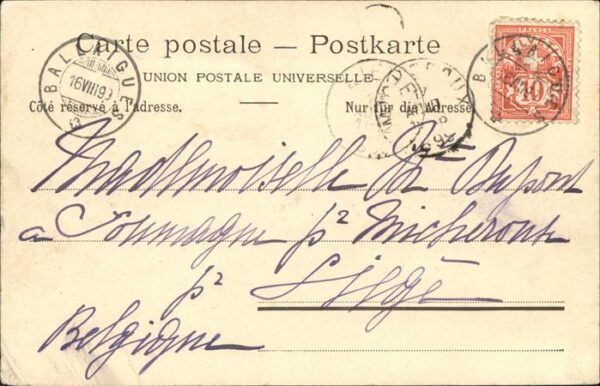 Carte postale — Postkarte
UNION POSTALE UNIVERSELLE
Côté réservé à l'adresse. Nur für die Adresse.
BALLAIGUES
16 VIII 19
BALLAIGUES
FRANCO
10
Mademoiselle Dupont
a Soumagne pr Micheroux
pr Liège
Belgique